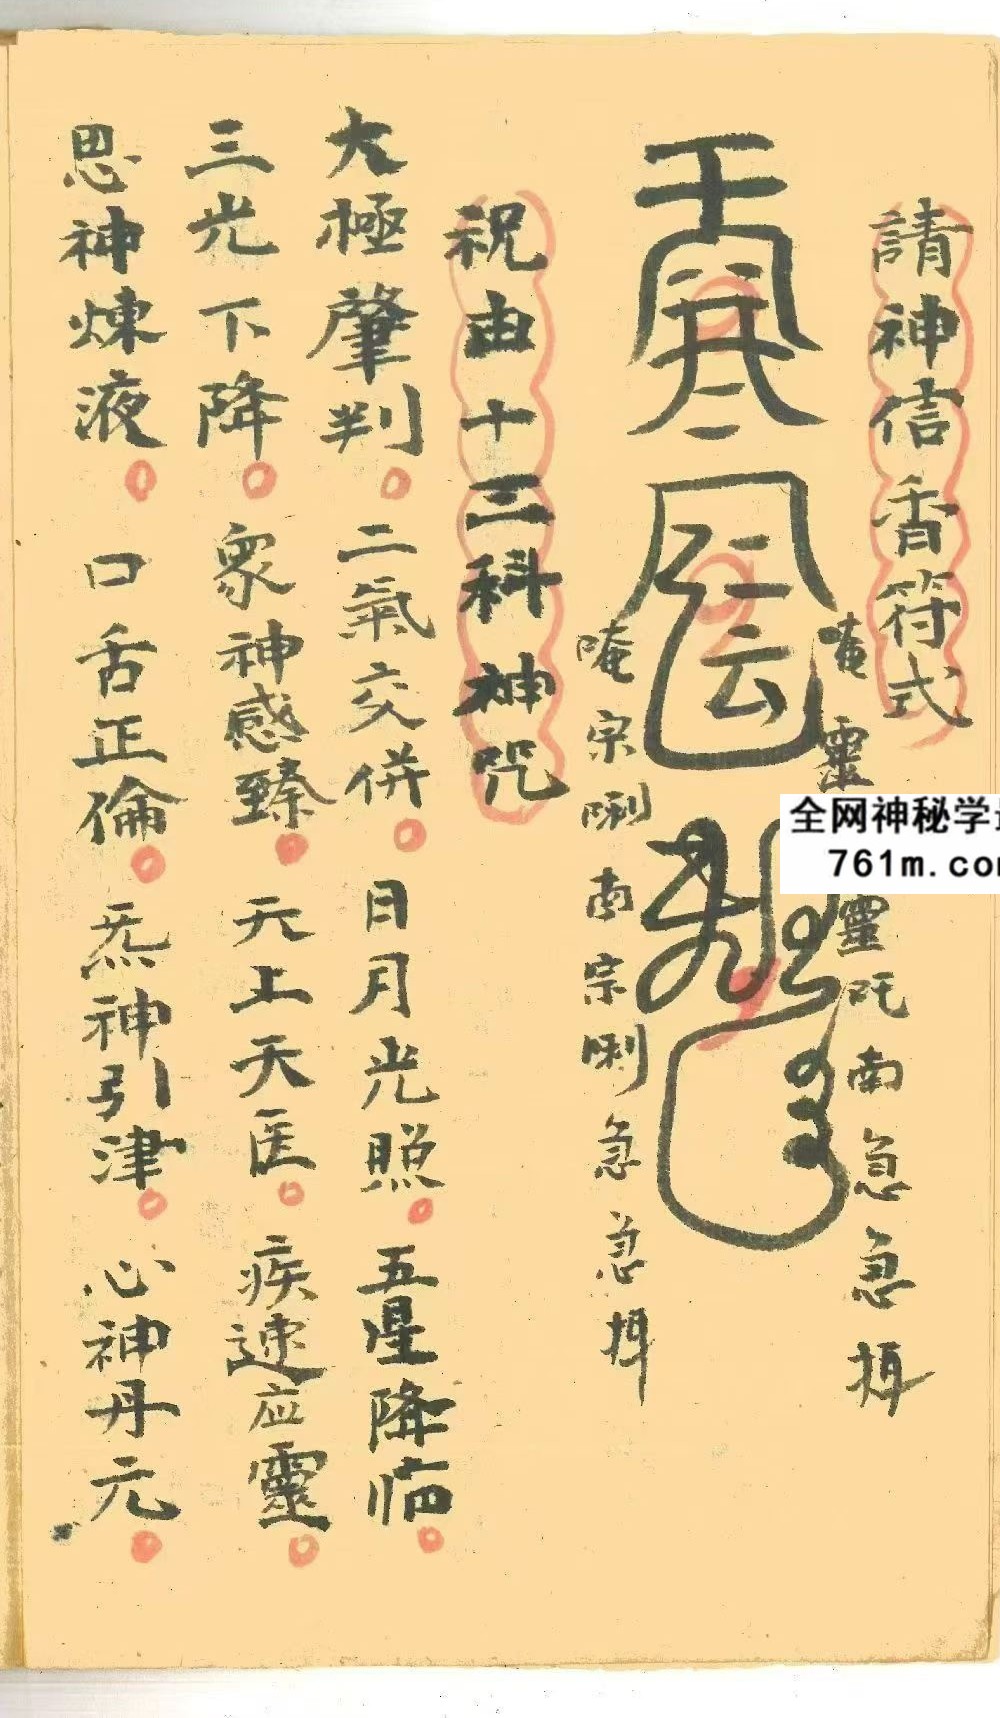 請神信香符式
靈 靈吒南急急
唵宗唎南宗唎急急
祝由十三科神咒
太極肇判。二氣交併。日月光照。五星降临。
三光下降。眾神感臻。天上天医。疾速应靈。
思神煉液。口舌正倫。炁神引津。心神丹元。
全网神秘学
761m.co